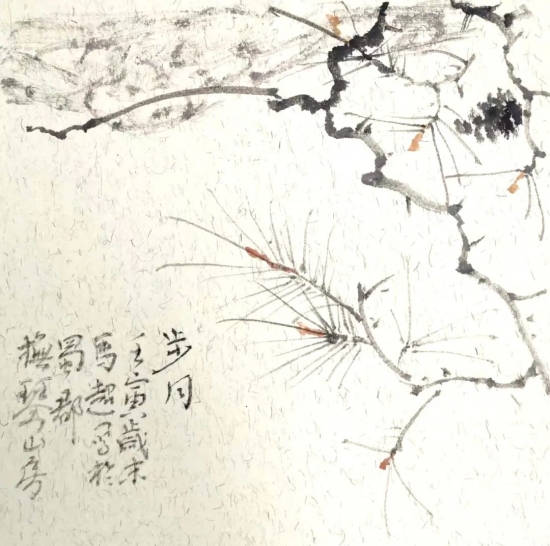 步月
壬寅歲末
馬超写於
蜀郡
撫琴山房